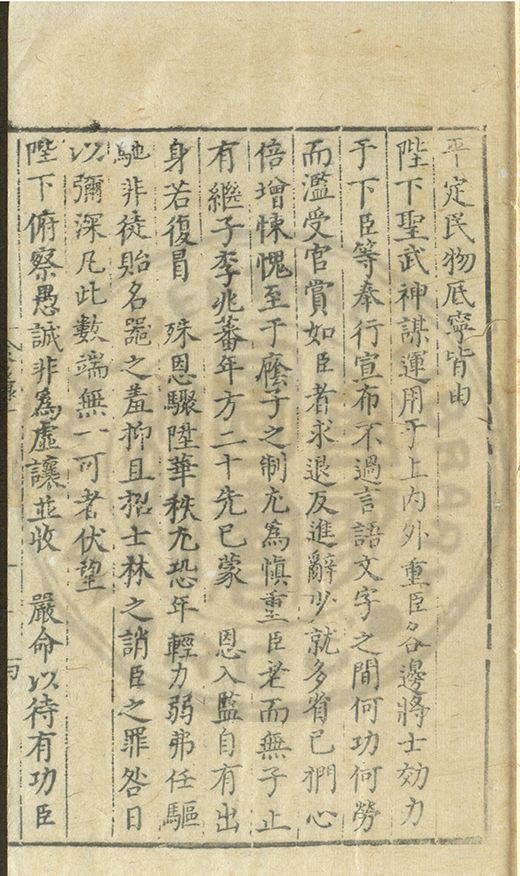 平定民物底寧皆由
陛下聖武神謀運用于上內外重臣各邊將士効力
于下臣等奉行宣布不過言語文字之間何功何勞
而濫受官賞如臣者求退反進辭少就多省已捫心
倍增悚愧至于廕子之制尤為慎重臣老而無子止
有繼子李兆蕃年方二十先已蒙　恩入監自有出
身若復冒　殊恩驟陞華秩尤恐年輕力弱弗任驅
馳非徒貽名器之羞抑且招士林之誚臣之罪咎日
以彌深凡此數端無一可者伏望
陛下俯察愚誠非為虛讓並收　嚴命以待有功臣